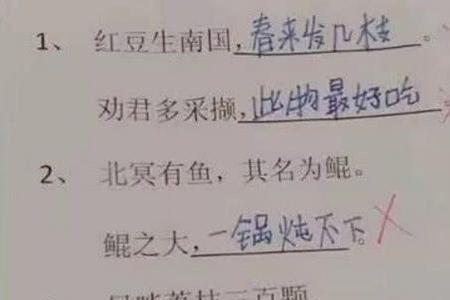 1、 红豆生南国,春来发几枝。
劝君多采撷,此物最好吃
2、 北冥有鱼，其名为鲲。
鲲之大,一锅炖不下。